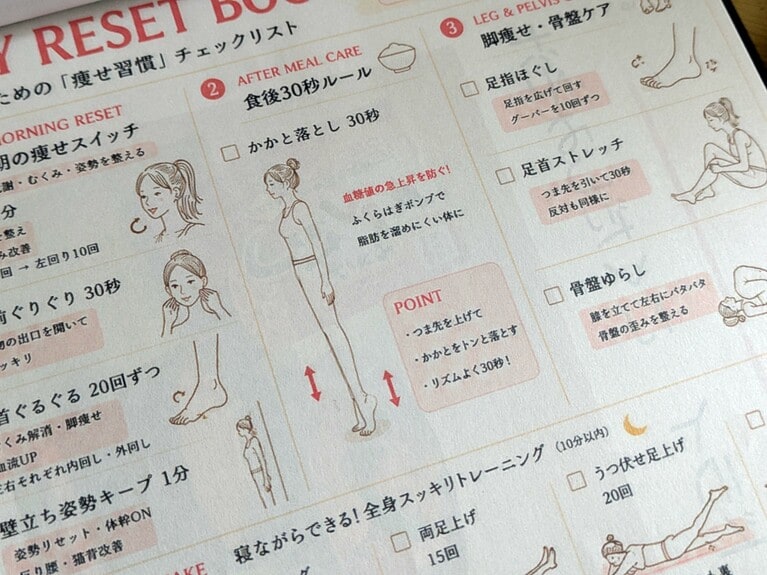 Y RESET BOO
ための「痩せ習慣」チェックリスト
MORNING RESET
朝の痩せスイッチ
代謝・むくみ・姿勢を整える
分
を整え
み改善
回 → 左回り10回
ぐりぐり 30秒
の出口を開いて
ッキリ
首ぐるぐる 20回ずつ
くみ解消・脚痩せ
血流UP
左右それぞれ内回し・外回し
壁立ち姿勢キープ 1分
姿勢リセット・体幹ON
反り腰・猫背改善
2 AFTER MEAL CARE
食後30秒ルール
かかと落とし 30秒
血糖値の急上昇を防ぐ!
ふくらはぎポンプで
脂肪を溜めにくい体に
POINT
・つま先を上げて
・かかとをトンと落とす
・リズムよく30秒!
3 LEG & PELVIS
脚痩せ・骨盤ケア
足指ほぐし
足指を広げて回す
グーパーを10回ずつ
足首ストレッチ
つま先を引いて30秒
反対も同様に
骨盤ゆらし
膝を立てて左右にパタパタ
骨盤の歪みを整える
寝ながらできる! 全身スッキリトレーニング (10分以内)
両足上げ
15回
うつ伏せ足上げ
20回